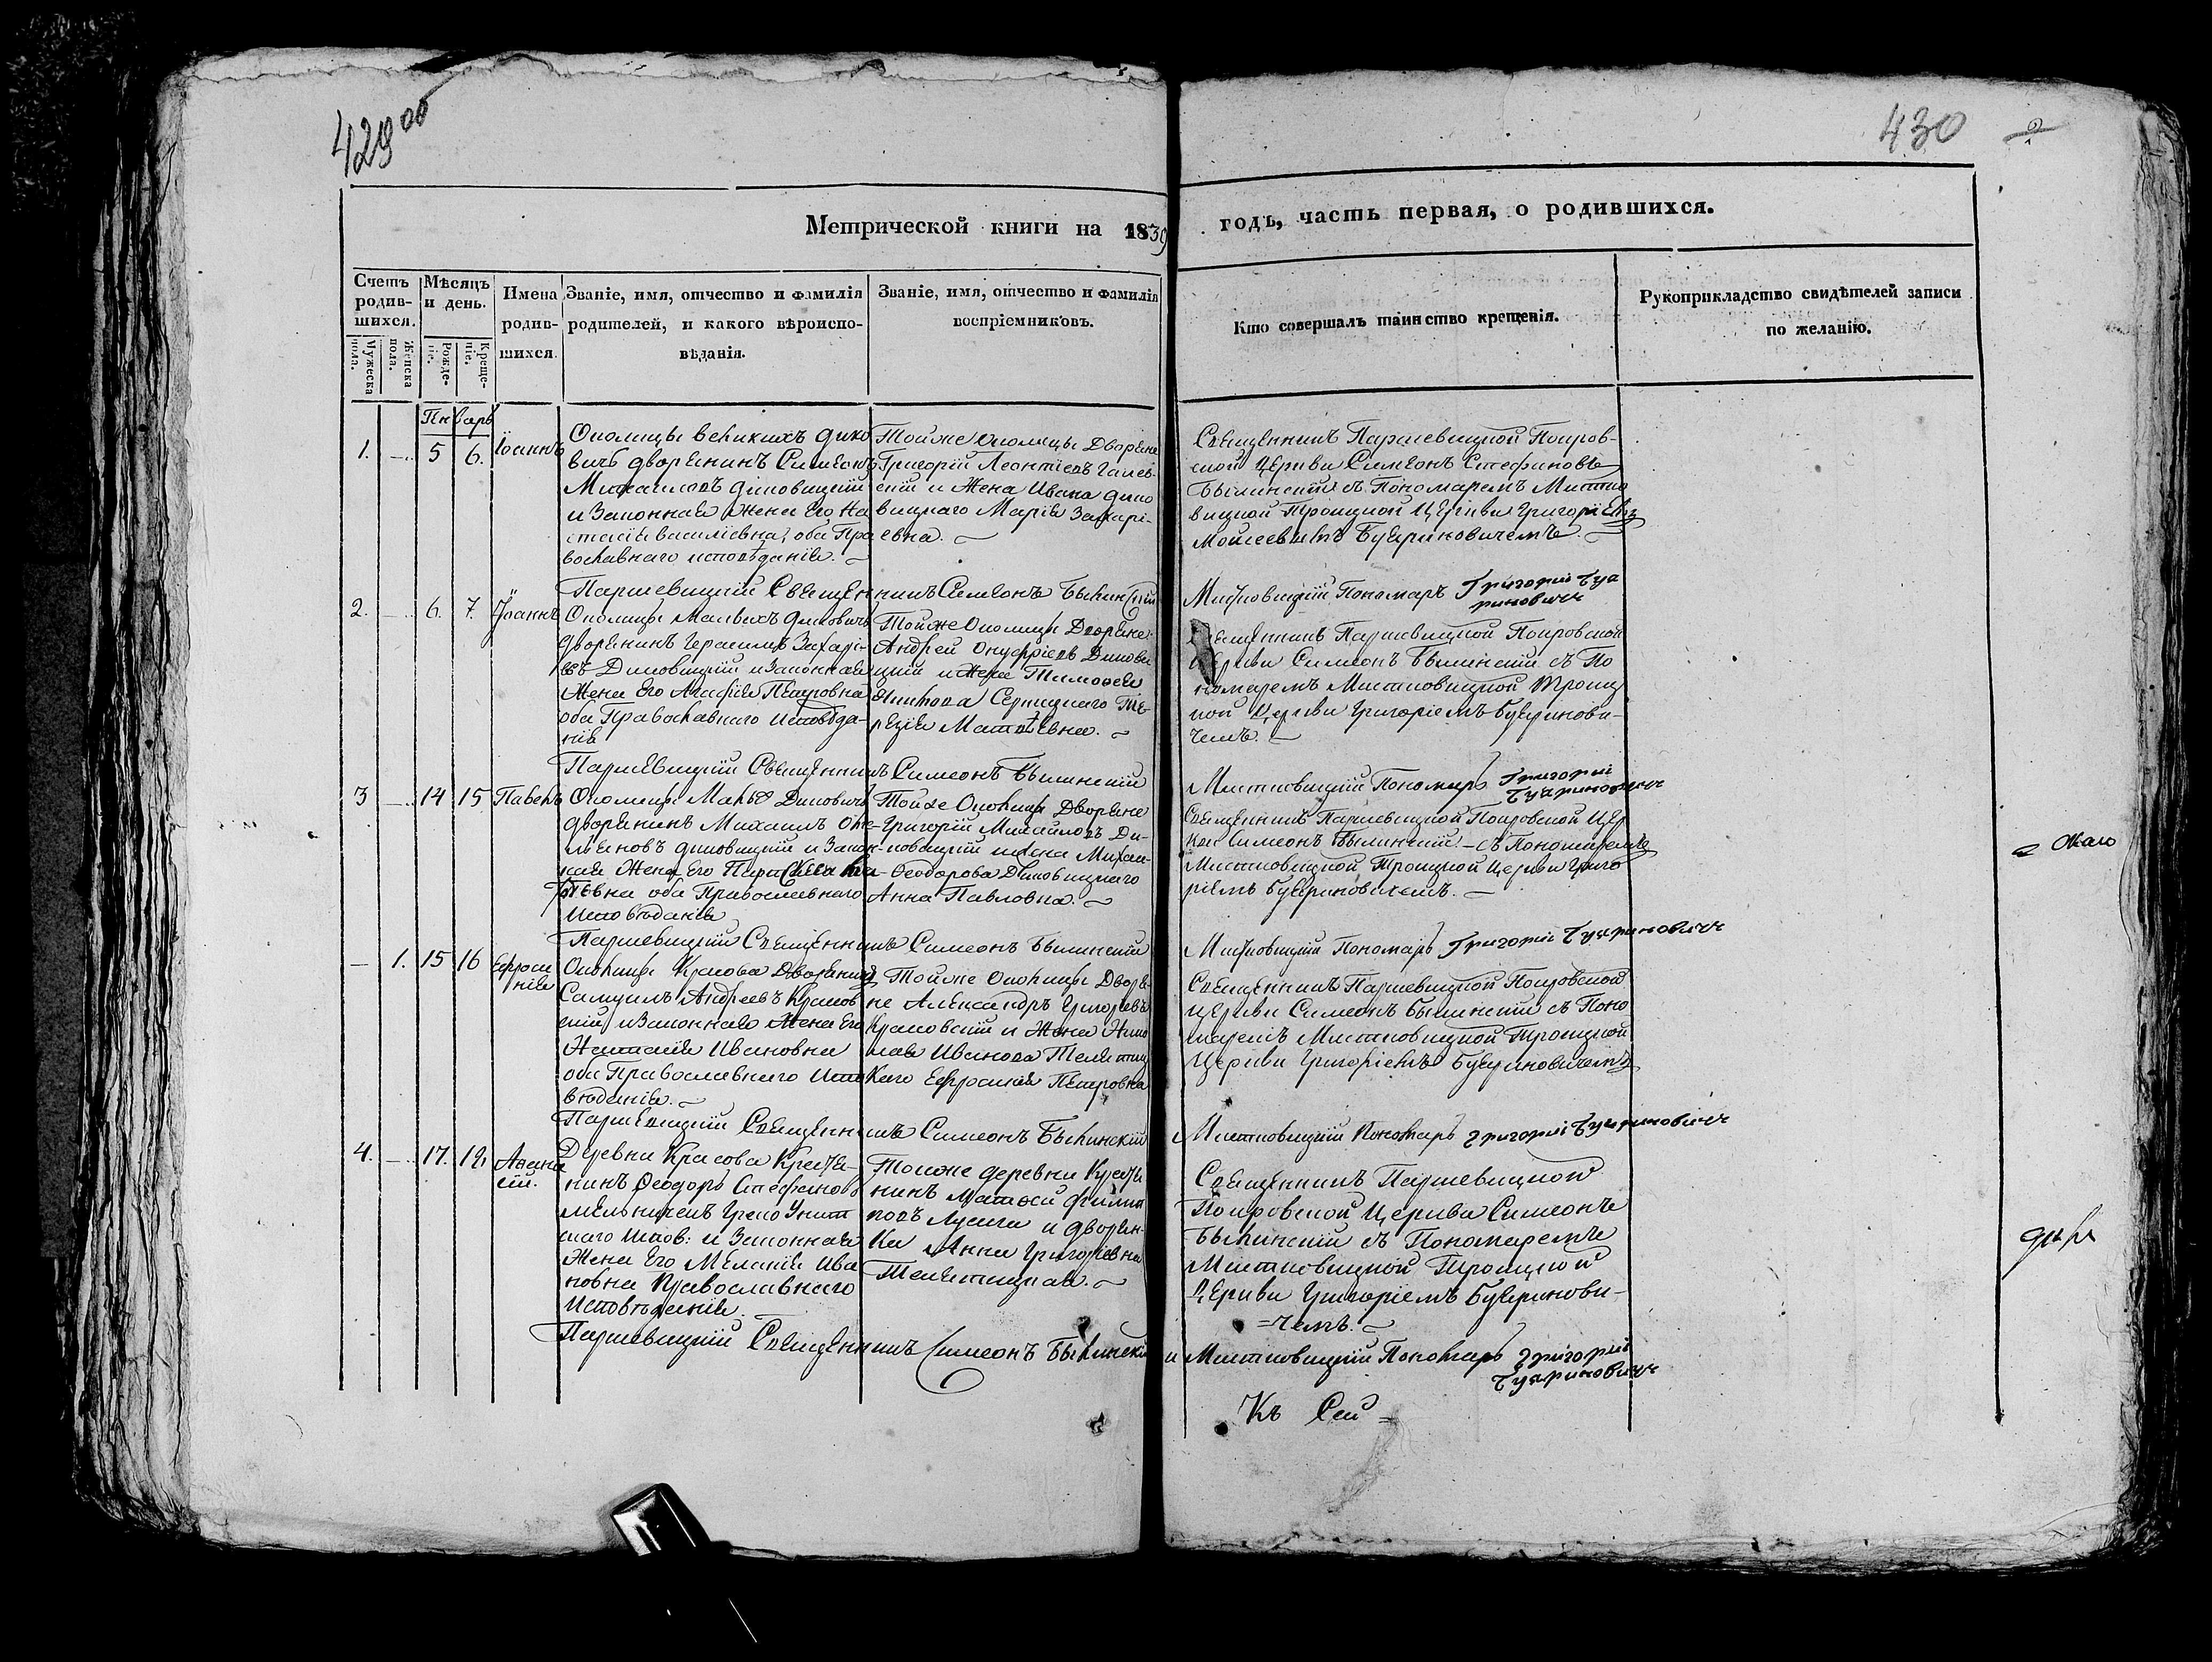 429 00
430
Метрической книги на 1839
годъ, часть первая, о родившихся.
Счетъ родившихся.
Мужеска пола.
Женска пола.
Мѣсяцъ и день.
Рожденіе.
Крещеніе.
Имена родившихся.
Званіе, имя, отчество и фамилія
родителей, и какого вѣроиспо-
вѣданія.
Званіе, имя, отчество и фамилія
воспріемниковъ.
Кто совершалъ таинство крещенія.
Рукоприкладство свидѣтелей записи
по желанію.
Январь
1. — 5 6. Іоаннъ
Околицы великихъ Дико
вичъ дворянинъ Симеонъ
Михаиловъ Диковицкій
и Законная Жена Его На
сталія Василіевна, оба Пра
вославнаго исповѣданія.
Тойже околицы Дворяне
Григорій Леонтіевъ
и Жена Ивана Дико
вицкаго Марія Захарі-
евна.
Священникъ Паршевицкой Покров-
ской Церкви Симеонъ Стефановъ
Былинскій съ Пономаремъ Мистко
вицкой Троицкой Церкви Григоріемъ
Моисеевымъ Букриновичемъ.
Паршевицкій Священникъ Симеонъ Былинскій
Мистковицкій Пономаръ Григорій Бук
риновичъ
2. — 6. 7. Іоаннъ
Околицы Малыхъ Диковичъ
дворянинъ Герасимъ Захарі-
евъ Диковицкій и Законная
Жена Его Агафія Петровна
оба Православнаго Исповѣда-
нія
Тойже Околицы Дворяне
Андрей Онуфріевъ Дикови
цкій и Жена Тимофея
Серницкаго Те-
резія Матвѣевна.
Священникъ Паршевицкой Покровской
Церкви Симеонъ Былинскій съ По
номаремъ Мистковицкой Троиц
кой Церкви Григоріемъ Букринови-
чемъ.
Паршевицкій Священникъ Симеонъ Былинскій
Мистковицкій Пономаръ Григорій
Букриновичъ
3 — 14 15 Павелъ
Околицы Малыхъ Диковичъ
дворянинъ Михаилъ Оме-
льяновъ Диковицкій и Закон-
ная Жена Его Параскева
оба Православнаго
Исповѣданія
Тойже Околицы Дворяне
Григорій Михайловъ Ди-
ковицкій и жена Михаи-
Ѳеодорова Диковицкаго
Анна Павловна.
Священникъ Паршевицкой Покровской Цер
кви Симеонъ Былинскій съ Пономаремъ
Мистковицкой Троицкой Церкви Григо
ріемъ Букриновичемъ.
Паршевицкій Священникъ Симеонъ Былинскій
Мистковицкій Пономаръ Григорій Букриновичъ
— 1. 15 16 Ефроси
нія
Околицы Красова Дворянинъ
Самуилъ Андреевъ Красов
скій и Законная Жена Его
Наталія Ивановна
оба Православнаго Испо
вѣданія.
Тойже Околицы Дворя-
не Александръ Григорьевъ
Красовскій и Жена Нико
лая Иванова Телятиц
каго Ефросинія Петровна
Священникъ Паршевицкой Покровской
Церкви Симеонъ Былинскій съ Поно
маремъ Мистковицкой Троицкой
Церкви Григоріемъ Букриновичемъ
Паршевицкій Священникъ Симеонъ Былинскій
Мистковицкій Пономаръ Григорій Букриновичъ
4. — 17. 19. Аѳана
сій.
Деревни Красова Крестья-
нинъ Ѳеодоръ Стефановъ
Мельничекъ Греко Унит
скаго Испов: и Законная
Жена Его Меланія Ива
новна Православнаго
Исповѣданія.
Тойже деревни Крестья
нинъ Матѳей Филип
повъ и Дворян-
ка Анна Григорьевна
Телятицкая.
Священникъ Паршевицкой
Покровской Церкви Симеонъ
Былинскій съ Пономаремъ
Мистковицкой Троицкой
Церкви Григоріемъ Букринови-
=чемъ.
Паршевицкій Священникъ Симеонъ Былинскій
и Мистковицкій Пономаръ Григорій
Букриновичъ
Къ Сей =